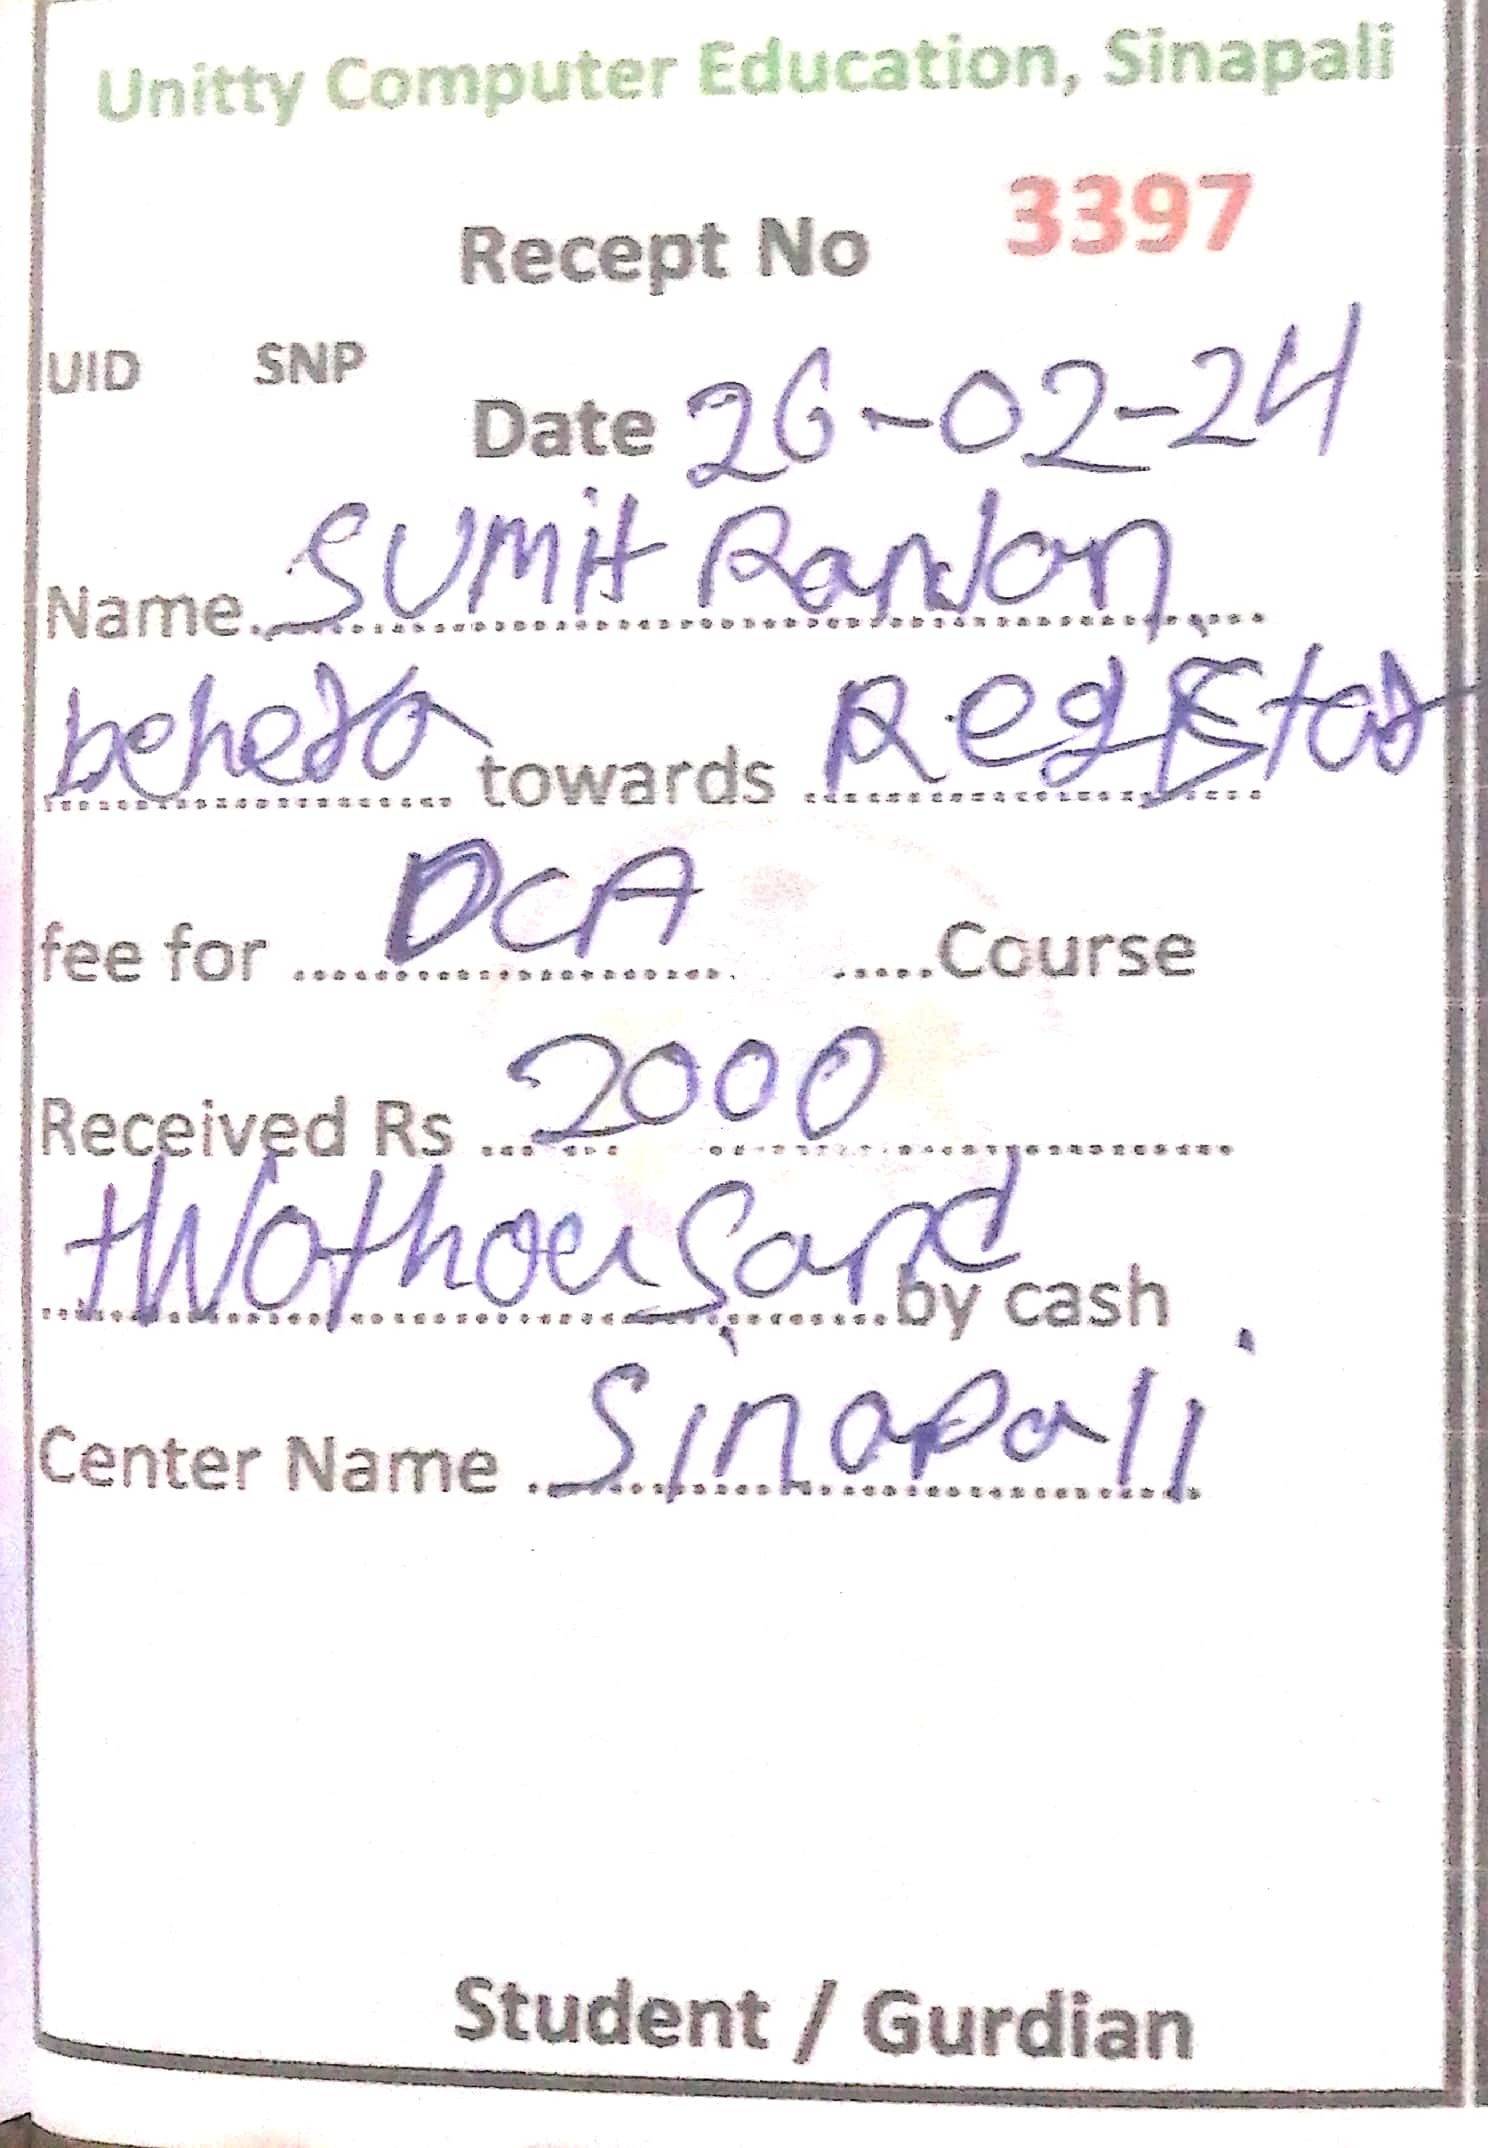 Unitty Computer Education, Sinapali
Recept No 3397
UID SNP
Date 26-02-24
Name SUMit Ranjan
behera towards Registar
fee for DCA Course
Received Rs 2000
twothousand by cash
Center Name Sinapali
Student / Gurdian